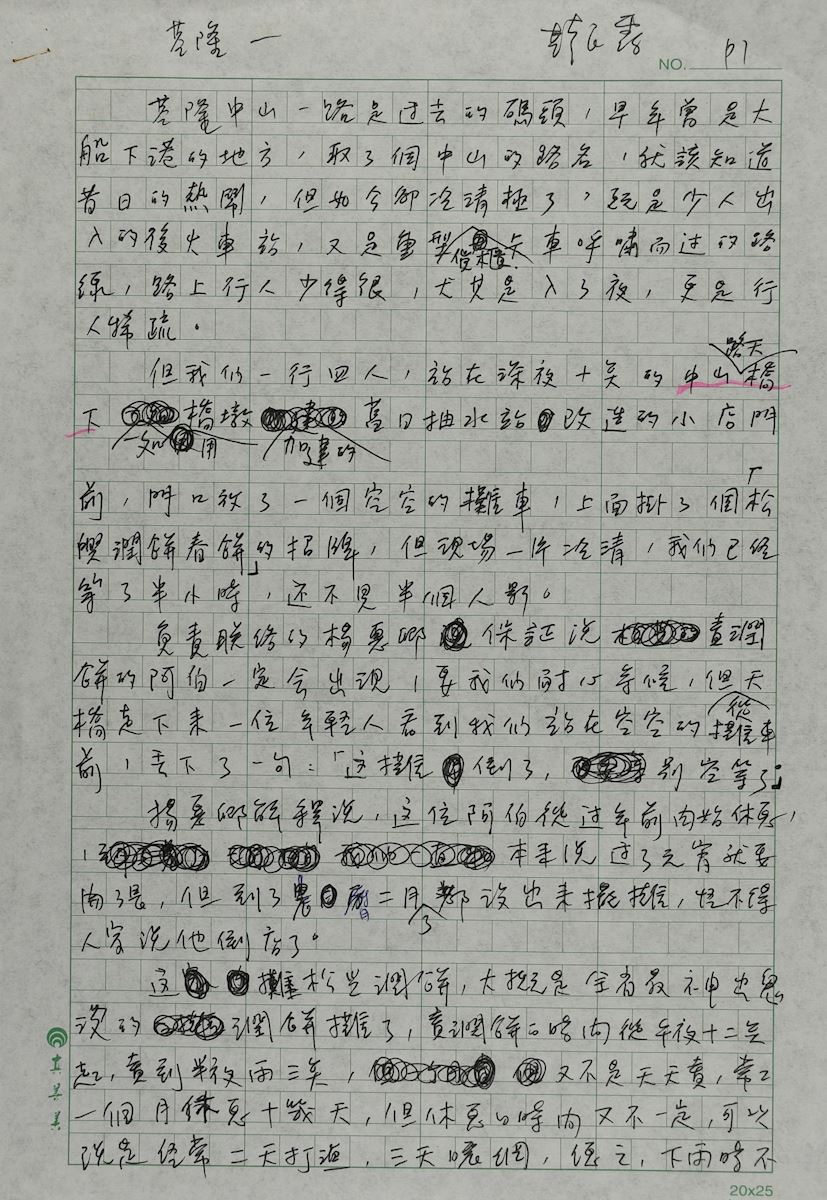 基隆一
NO. P1
基隆中山一路是过去的碼頭，早年曾是大
船下港的地方，取了個中山的路名，就該知道
昔日的熱鬧，但如今卻冷清極了，既是少人出
入的後火車站，又是重型貨櫃卡車呼嘯而过的路
線，路上行人少得很，尤其是入了夜，更是行
人稀疏。
但我们一行四人，站在深夜十奌的中山路天橋
下
橋墩加建的舊日抽水站改造的小店門
前，門口放了一個空空的攤車，上面掛了個「松
潤餅春餅」的招牌，但現場一片冷清，我们已经
等了半小時，还不見半個人影。
負責联络的楊惠卿保証说賣潤
餅的阿伯一定会出現，要我们耐心等候，但從天
橋走下来一位年輕人看到我们站在空空的攤車
前，丟下了一句：「这攤倒了，別空等了」
楊惠卿解釋说，这位阿伯從过年前開始休息，
本来说过了元宵就要
開張，但到了農曆二月了都没出来擺攤，怪不得
人家说他倒店了。
这攤松潤餅，大概是全省最神出鬼
没的潤餅攤了，賣潤餅的時间從午夜十二奌
起，賣到半夜兩三奌，又不是天天賣，常常
一個月休息十幾天，但休息的時间又不一定，可以
说是经常二天打漁，三天曬網，總之，下雨時不
20x25